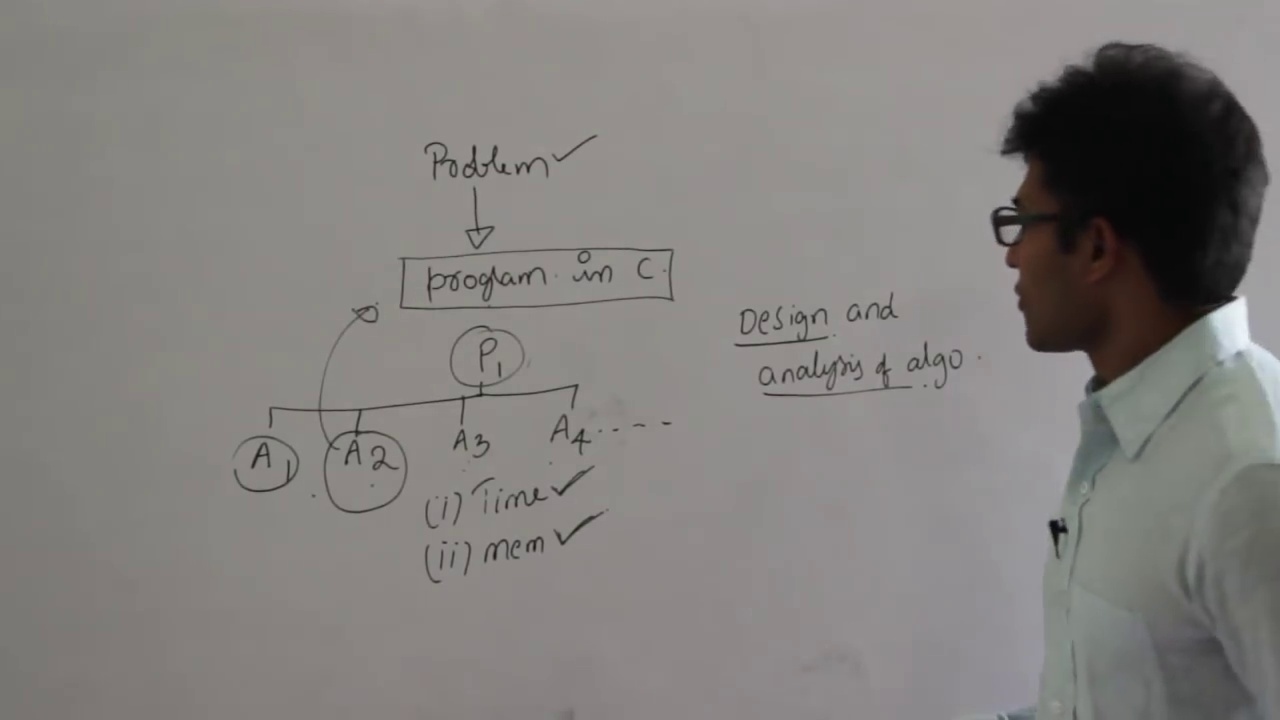 Problem ✓
program in C.
P1
A1 A2 A3 A4 -----
(i) Time ✓
(ii) mem ✓
Design and
analysis of algo.